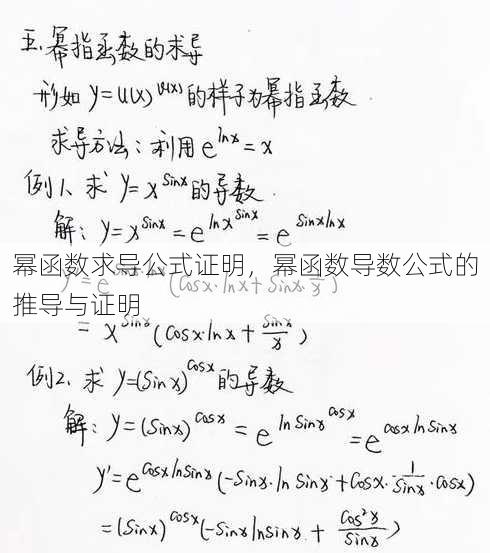 五、幂指函数的求导
形如 y=u(x)^v(x) 的样子为幂指函数.
求导方法：利用 e^lnx = x
例1、求 y=x^sinx 的导数.
解：y=x^sinx = e^lnx^sinx = e^sinxlnx
幂函数求导公式证明，幂函数导数公式的
y'=e (cosx·lnx+sinx·1/x)
推导与证明
= x^sinx (cosx·lnx + sinx/x)
例2、求 y=(sinx)^cosx 的导数
解：y=(sinx)^cosx = e^lnsinx^cosx = e^cosxlnsinx
y'=e^cosxlnsinx (-sinx·lnsinx+cosx·1/sinx·cosx)
=(sinx)^cosx (-sinxlnsinx + cos²x/sinx)